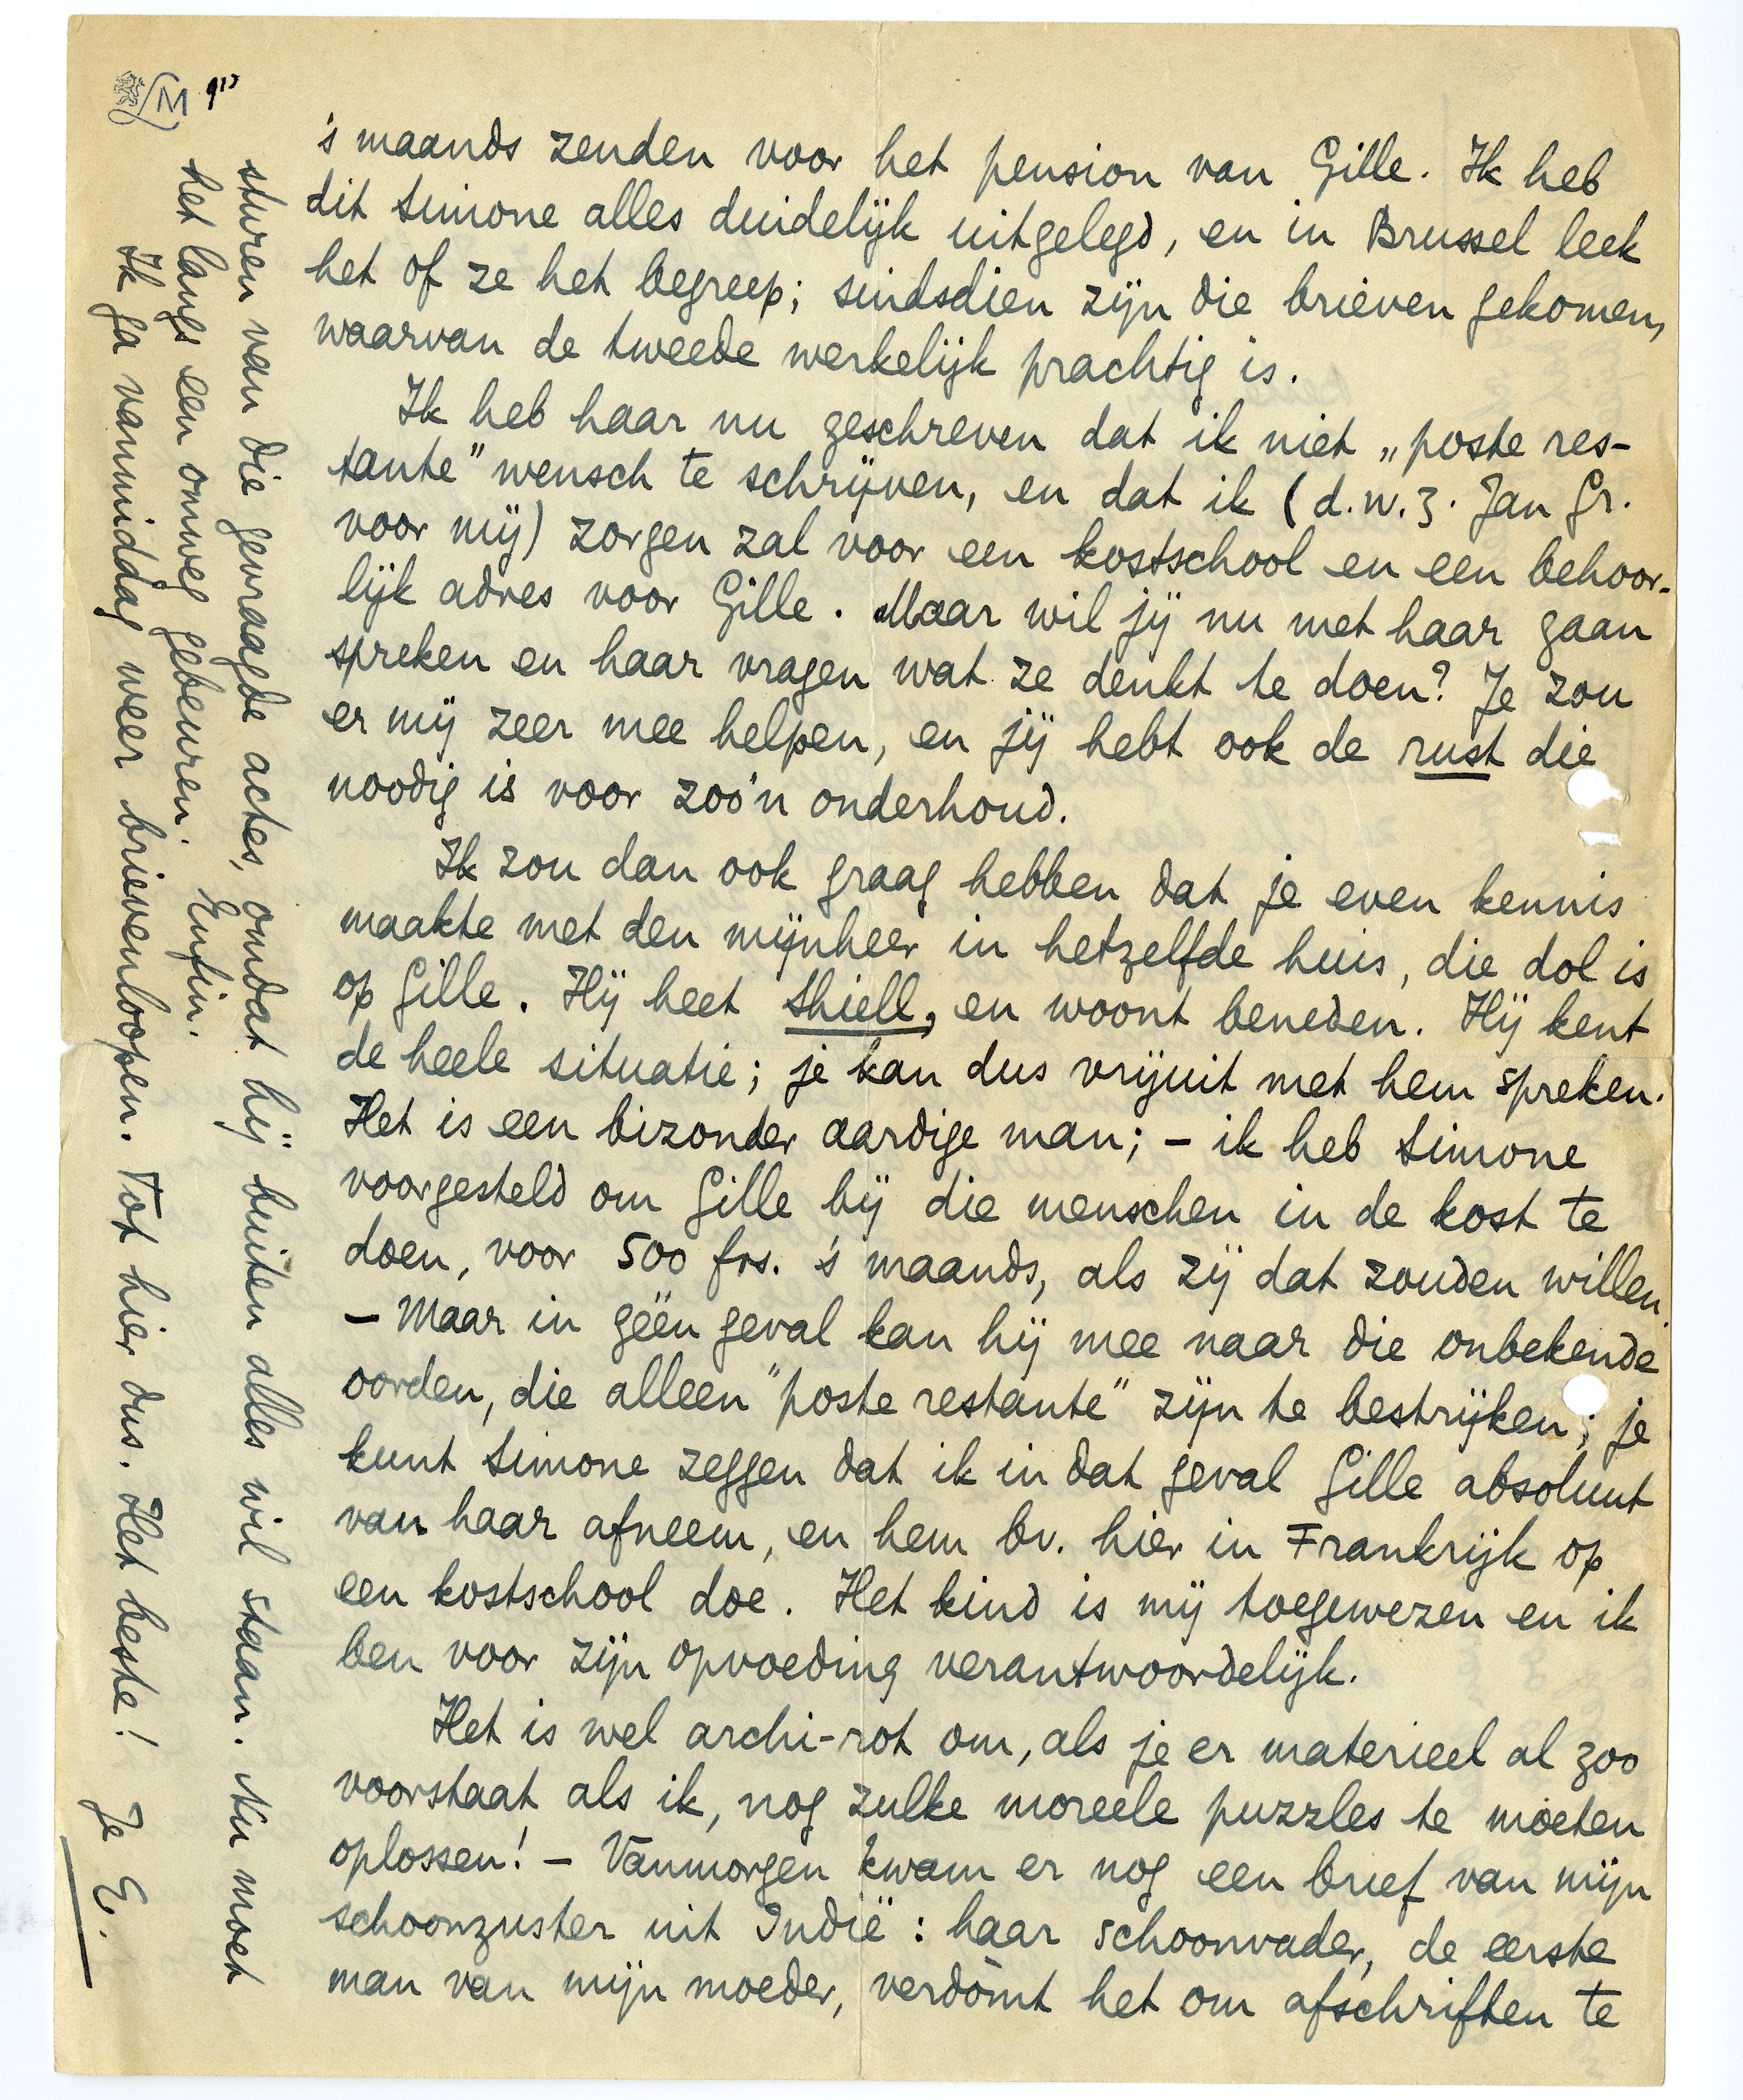 's maands zenden voor het pension van Gille. Ik heb
dit Simone alles duidelijk uitgelegd, en in Brussel leek
het of ze het begreep; sindsdien zijn die brieven gekomen,
waarvan de tweede werkelijk prachtig is.
Ik heb haar nu geschreven dat ik niet „poste res-
tante" wensch te schrijven, en dat ik (d.w.z. Jan Gr.
voor mij) zorgen zal voor een kostschool en een behoor-
lijk adres voor Gille. Maar wil jij nu met haar gaan
spreken en haar vragen wat ze denkt te doen? Je zou
er mij zeer mee helpen, en jij hebt ook de rust die
noodig is voor zoo'n onderhoud.
Ik zou dan ook graag hebben dat je even kennis
maakte met den mijnheer in hetzelfde huis, die dol is
op Gille. Hij heet Shiell, en woont beneden. Hij kent
de heele situatie; je kan dus vrijuit met hem spreken.
Het is een bizonder aardige man; – ik heb Simone
voorgesteld om Gille bij die menschen in de kost te
doen, voor 500 frs. 's maands, als zij dat zouden willen.
– Maar in géén geval kan hij mee naar die onbekende
oorden, die alleen "poste restante" zijn te bestrijken; je
kunt Simone zeggen dat ik in dat geval Gille absoluut
van haar afneem, en hem bv. hier in Frankrijk op
een kostschool doe. Het kind is mij toegewezen en ik
ben voor zijn opvoeding verantwoordelijk.
Het is wel archi-rot om, als je er materieel al zoo
voorstaat als ik, nog zulke moreele puzzles te moeten
oplossen! – Vanmorgen kwam er nog een brief van mijn
schoonzuster uit Indië: haar schoonvader, de eerste
man van mijn moeder, verdòmt het om afschriften te
sturen van die gevraagde actes, omdat hij buiten alles wil staan. Nu moet
het langs een omweg gebeuren. Enfin.
Ik ga vanmiddag weer brievenloopen. Tot hier dus. Het beste! Je E.
LM